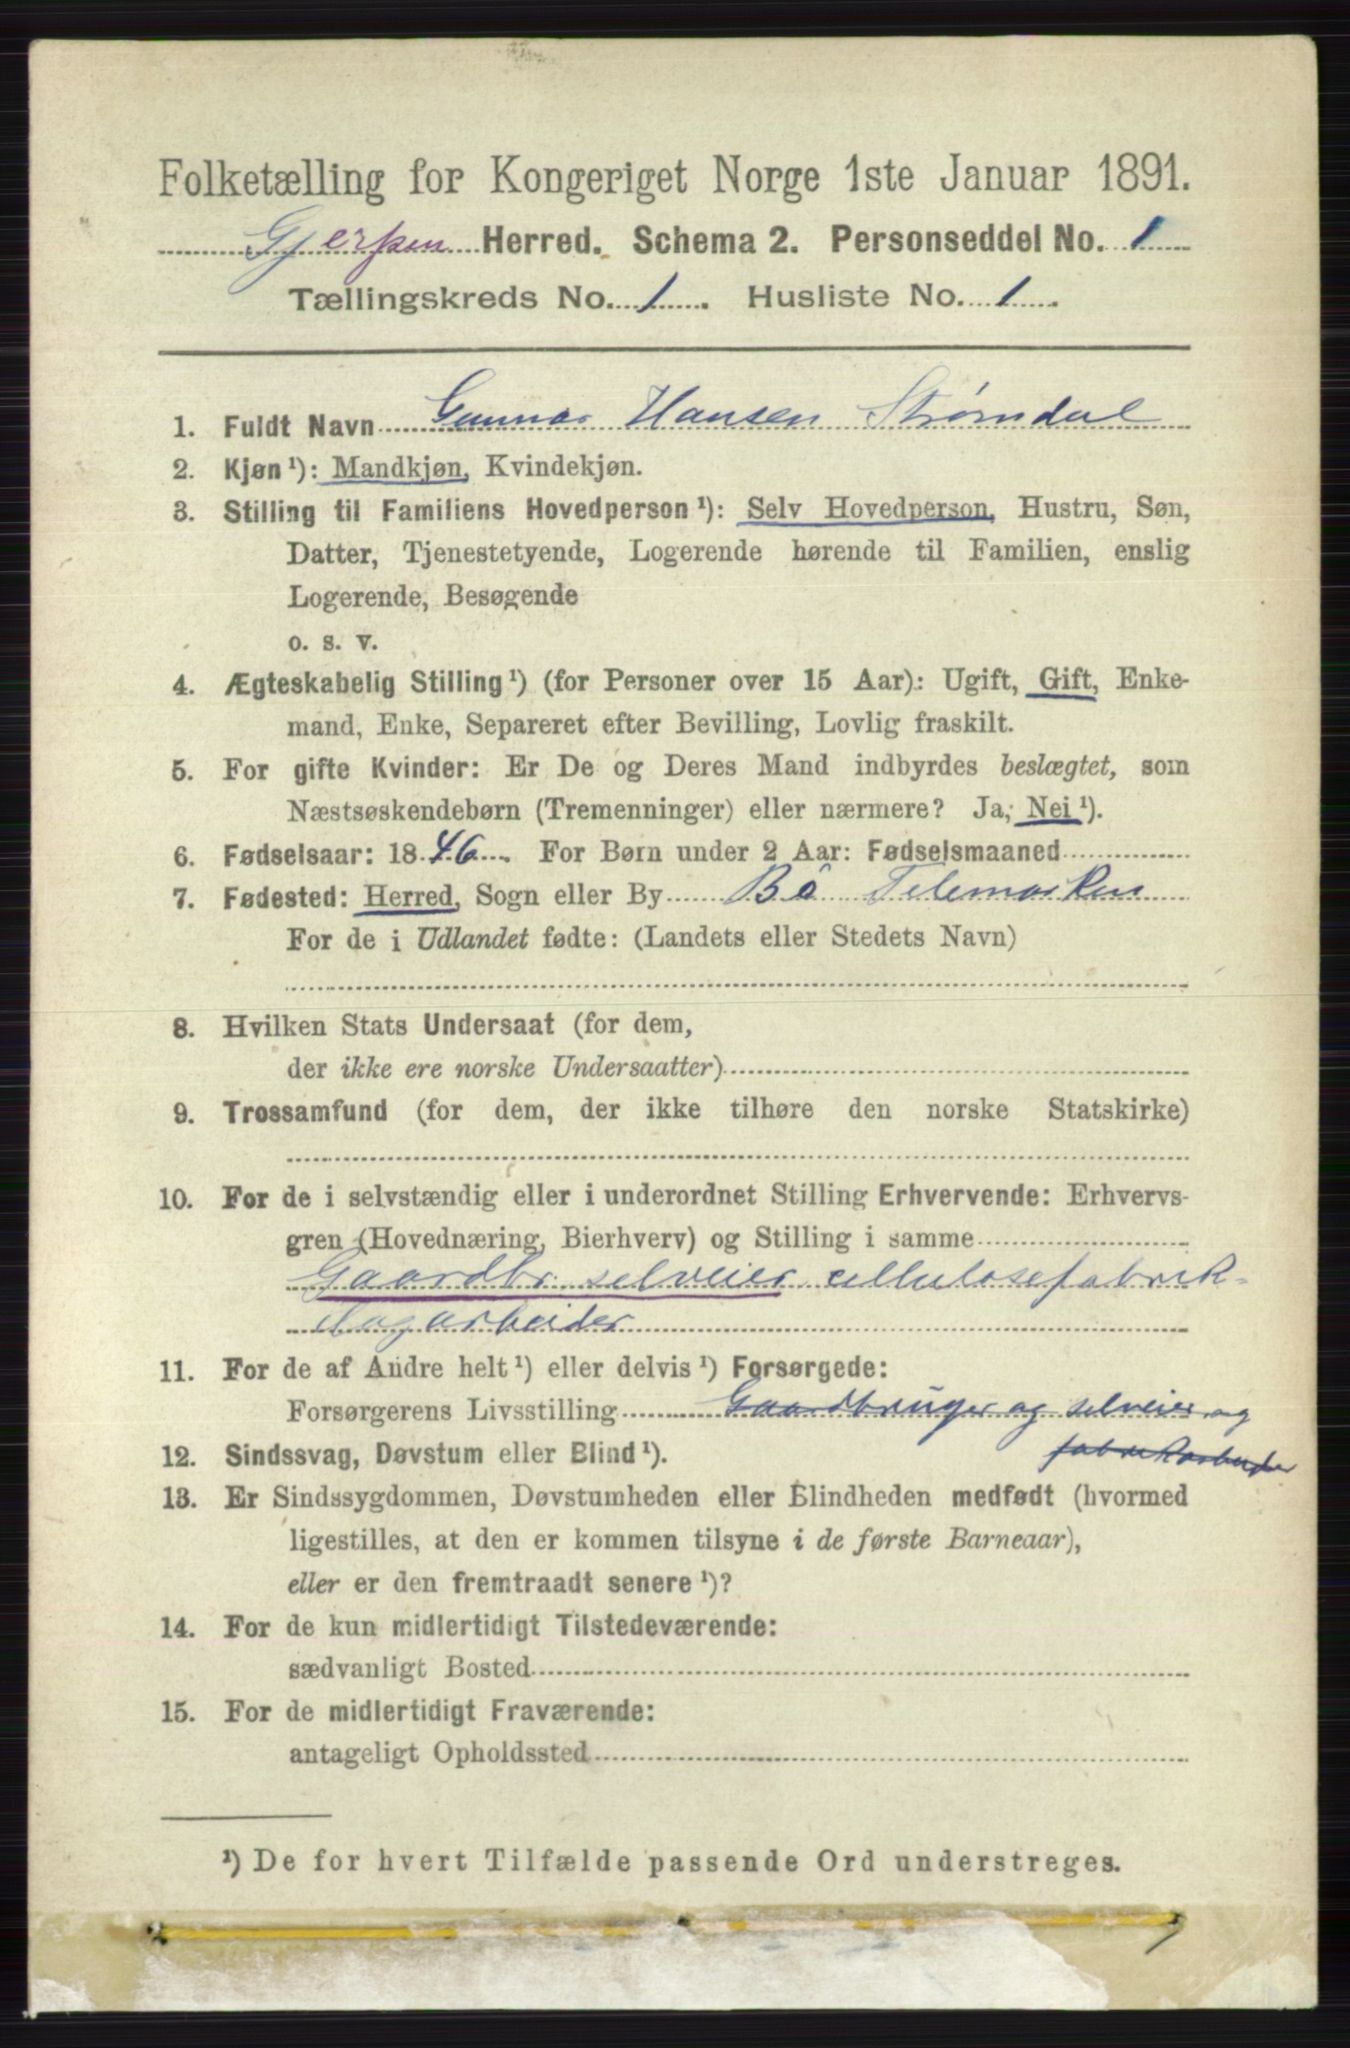 Folketælling for Kongeriget Norge 1ste Januar 1891.
Gjerpen Herred. Schema 2. Personseddel No. 1
Tællingskreds No. 1. Husliste No. 1.
1. Fuldt Navn Gunnar Hansen Strømdal
2. Kjøn¹): Mandkjøn, Kvindekjøn.
3. Stilling til Familiens Hovedperson¹): Selv Hovedperson, Hustru, Søn,
Datter, Tjenestetyende, Logerende hørende til Familien, enslig
Logerende, Besøgende
o. s. v.
4. Ægteskabelig Stilling¹) (for Personer over 15 Aar): Ugift, Gift, Enke-
mand, Enke, Separeret efter Bevilling, Lovlig fraskilt.
5. For gifte Kvinder: Er De og Deres Mand indbyrdes beslægtet, som
Næstsøskendebørn (Tremenninger) eller nærmere? Ja, Nei¹).
6. Fødselsaar: 1846. For Børn under 2 Aar: Fødselsmaaned
7. Fødested: Herred, Sogn eller By Bö Telemarken
For de i Udlandet fødte: (Landets eller Stedets Navn)
8. Hvilken Stats Undersaat (for dem,
der ikke ere norske Undersaatter)
9. Trossamfund (for dem, der ikke tilhøre den norske Statskirke)
10. For de i selvstændig eller i underordnet Stilling Erhvervende: Erhvervs-
gren (Hovednæring, Bierhverv) og Stilling i samme
Gaardbr. selveier cellulosefabrik-
dagarbeider
11. For de af Andre helt¹) eller delvis¹) Forsørgede:
Forsørgerens Livsstilling Gaardbruger og selveier og
fabrikarbeider
12. Sindssvag, Døvstum eller Blind¹).
13. Er Sindssygdommen, Døvstumheden eller Blindheden medfødt (hvormed
ligestilles, at den er kommen tilsyne i de første Barneaar),
eller er den fremtraadt senere¹)?
14. For de kun midlertidigt Tilstedeværende:
sædvanligt Bosted
15. For de midlertidigt Fraværende:
antageligt Opholdssted
¹) De for hvert Tilfælde passende Ord understreges.